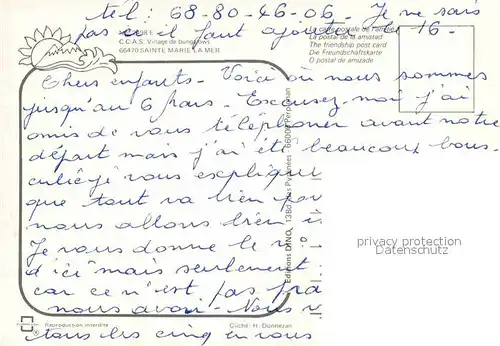 tel: 68-80-46-06 Je ne sais
pas ce il faut ajouter le 16.
C.C.A.S. Village de Bungalows
66470 SAINTE MARIE LA MER
La carte postale de l'amitié
La postal de la amistad
The friendship post card
Die Freundschaftskarte
O postal de amizade
Chers enfants. Voici où nous sommes
jusqu'au 6 pars. Excusez-moi j'ai
omis de vous téléphoner avant notre
départ mais j'ai été beaucoup bous-
culée je vous explique
que tout va bien po
nous allons bien i
Je vous donne le n°
d'ici mais seulement
car ce n'est pas pra
nous avoir. Nous v
tous les cinq en vous
Editions DINO, 138d, des Pyrénées 66000 Perpignan
privacy protection
Datenschutz
Reproduction interdite
Cliché: H. Donnezan